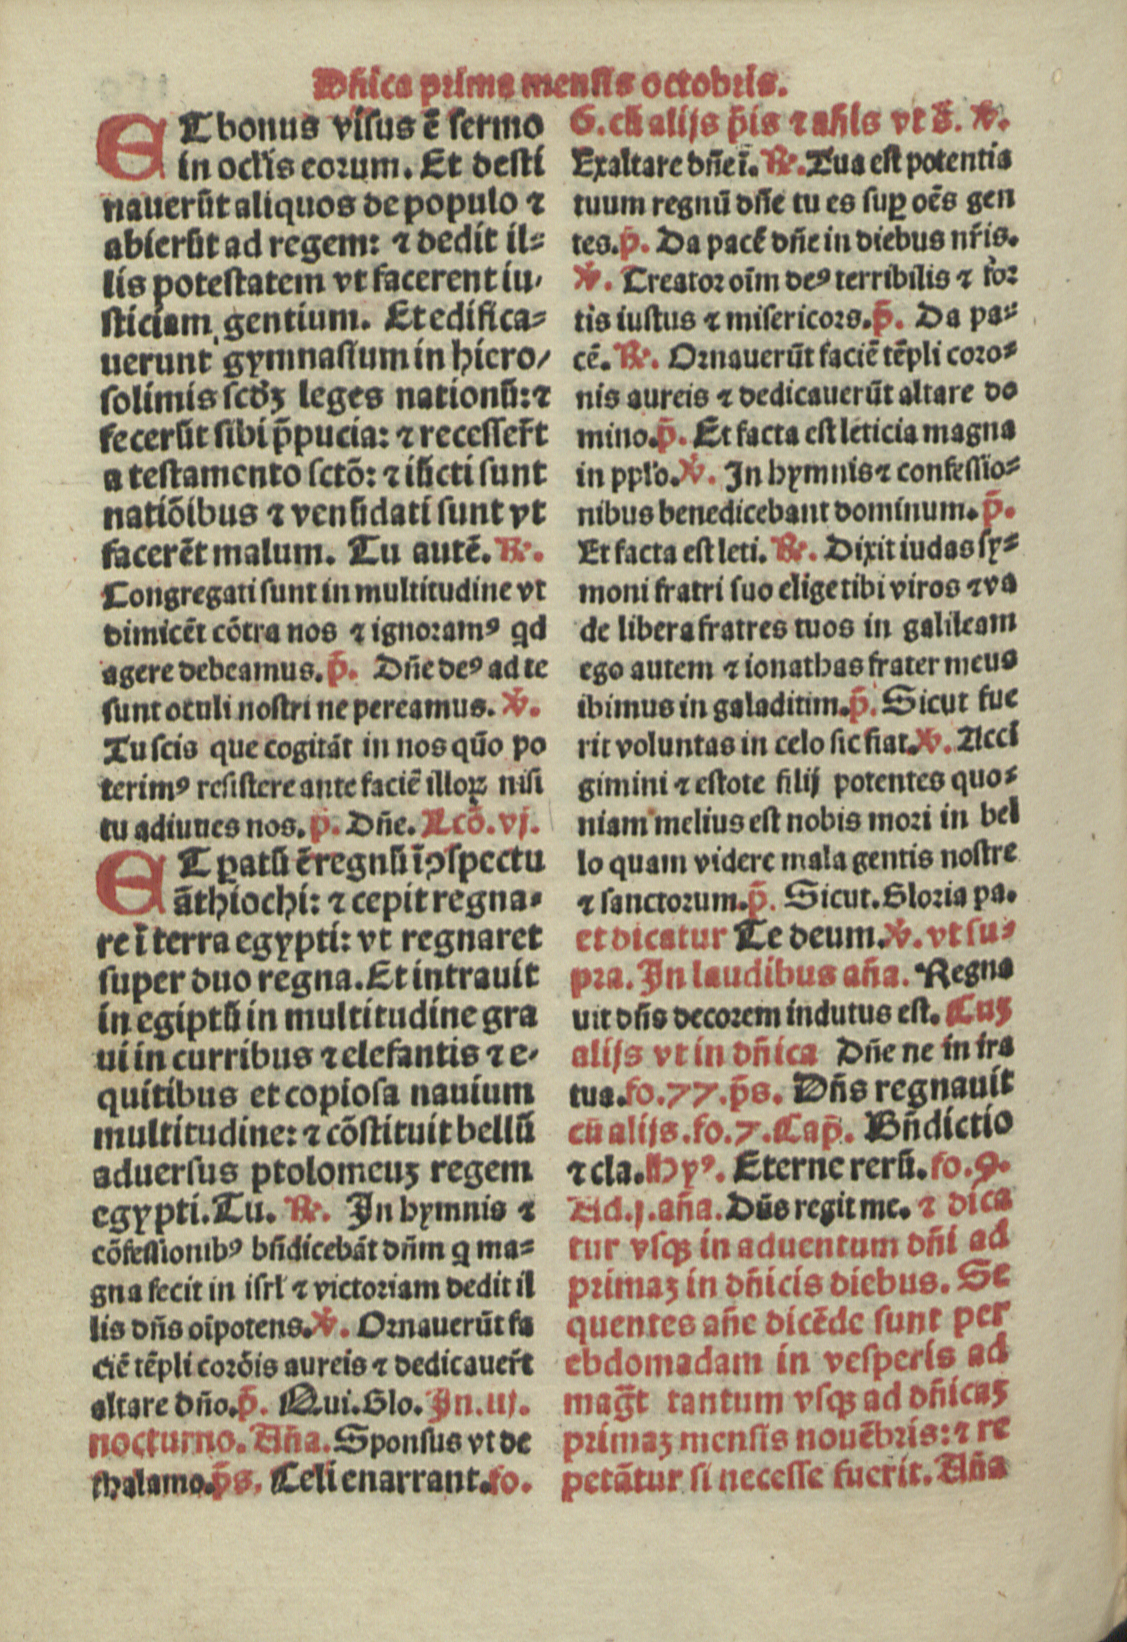 Dñica prima mensis octobris.
ET bonus visus ē sermo
in oclīs eorum. Et desti
nauerūt aliquos de populo ⁊
abierūt ad regem: ⁊ dedit il⸗
lis potestatem vt facerent iu⸗
sticiam gentium. Et edifica⸗
uerunt gymnasium in hiero⸗
solimis scdꝫ leges nationū: ⁊
fecerūt sibi p̄pucia: ⁊ recesser̄t
a testamento sctō: ⁊ iūcti sunt
natiōibus ⁊ venūdati sunt vt
facerēt malum. Tu autē. ℞.
Congregati sunt in multitudine vt
dimicēt cōtra nos ⁊ ignoramꝰ qd
agere debeamus. p̄. Dñe deꝰ ad te
sunt oculi nostri ne pereamus. ℣.
Tu scis que cogitāt in nos quō po
terimꝰ resistere ante faciē illoꝝ nisi
tu adiuues nos. p̄. Dñe. Lcō. vj.
ET patū ē regnū ī ꝯspectu
āthiochi: ⁊ cepit regna⸗
re ī terra egypti: vt regnaret
super duo regna. Et intrauit
in egiptū in multitudine gra
ui in curribus ⁊ elefantis ⁊ e⸗
quitibus et copiosa nauium
multitudine: ⁊ cōstituit bellū
aduersus ptolomeuꝫ regem
egypti. Tu. ℞. In hymnis ⁊
cōfessionibꝰ bñdicebāt dñm q ma⸗
gna fecit in isrl ⁊ victoriam dedit il
lis dñs oīpotens. ℣. Ornauerūt fa
ciē tēpli corōis aureis ⁊ dedicauer̄t
altare dño. p̄. Qui. Glo. In. iij.
nocturno. Aña. Sponsus vt de
thalamo. p̄s. Celi enarrant. fo.
6. cū alijs p̄is ⁊ añis vt s̄. ℣.
Exaltare dñe ī. ℞. Tua est potentia
tuum regnū dñe tu es suꝑ oēs gen
tes. p̄. Da pacē dñe in diebus nr̄is.
℣. Creator oīm deꝰ terribilis ⁊ for
tis iustus ⁊ misericors. p̄. Da pa⸗
cē. ℞. Ornauerūt faciē tēpli coro⸗
nis aureis ⁊ dedicauerūt altare do
mino. p̄. Et facta est leticia magna
in pplo. ℣. In hymnis ⁊ confessio⸗
nibus benedicebant dominum. p̄.
Et facta est leti. ℞. Dixit iudas sy⸗
moni fratri suo elige tibi viros ⁊ va
de libera fratres tuos in galileam
ego autem ⁊ ionathas frater meus
ibimus in galaditim. p̄. Sicut fue
rit voluntas in celo sic fiat. ℣. Acci
gimini ⁊ estote filij potentes quo⸗
niam melius est nobis mori in bel
lo quam videre mala gentis nostre
⁊ sanctorum. p̄. Sicut. Gloria pa.
et dicatur Te deum. ℣. vt su⸗
pra. In laudibus aña. Regna
uit dñs decorem indutus est. Cuꝫ
alijs vt in dñica Dñe ne in ira
tua. fo. 77. p̄s. Dñs regnauit
cū alijs. fo. 7. Cap̄. Bñdictio
⁊ cla. Hyꝰ. Eterne rerū. fo. 9.
Ad. j. aña. Dñs regit me. ⁊ dica
tur vsqꝫ in aduentum dñi ad
primaꝫ in dñicis diebus. Se
quentes añe dicēde sunt per
ebdomadam in vesperis ad
mag̃t tantum vsqꝫ ad dñicaꝫ
primaꝫ mensis nouēbris: ⁊ re
petātur si necesse fuerit. Aña